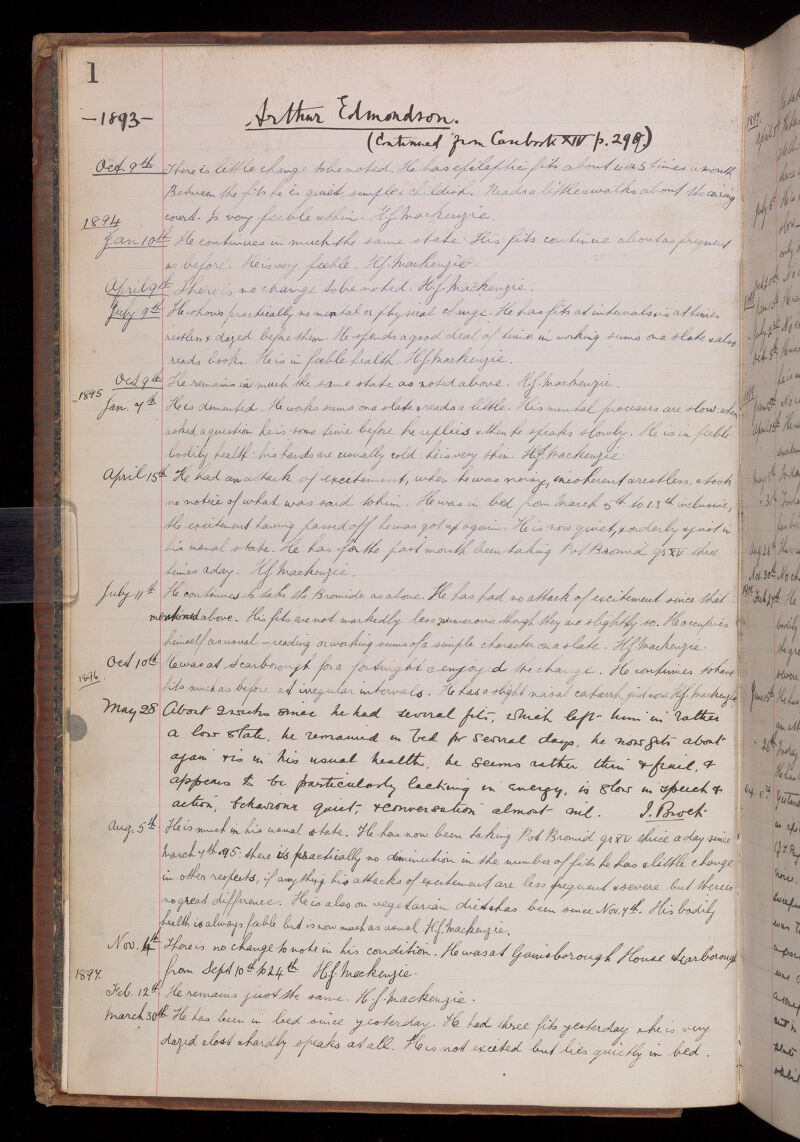 1
-1893-
Arthur Edmondson.
(Continued from Casebook XIV p. 298.)
Oct. 9th There is little change to be noted. He has epileptic fits about 4 or 5 times a month
Between the fits he is quiet, simple & childish. Reads a little & walks about the airing
court. Is very feeble & thin. H.J. Mackenzie.
1894
Jan 10th He continues in much the same state. His fits continue about as frequent
as before. He is very feeble. H.J. Mackenzie
April 9th There is no change to be noted. H.J. Mackenzie.
July 9th He shows practically no mental or physical change. He has fits at intervals & is at times
restless & dazed before them. He spends a good deal of time in working sums on a slate & also
reads books. He is in feeble health. H.J. Mackenzie.
Oct 9th He remains in much the same state as noted above. H.J. Mackenzie.
1895
Jan. 7th He is demented. He works sums on a slate & reads a little. His mental processes are slow: when
asked a question he is some time before he replies & then he speaks slowly. He is in feeble
bodily health: his hands are usually cold: he is very thin. H.J. Mackenzie
April 15th He had an attack of excitement, when he was noisy, incoherent & restless, & took
no notice of what was said to him. He was in bed from March 5th to 13th inclusive,
the excitement having passed off he was got up again. He is now quiet, & orderly & just in
his usual state. He has for the past month been taking Pot Bromid gr XV thrice
times a day. H.J. Mackenzie.
July 11th He continues to take the Bromide as above. He has had no attack of excitement since that
mentioned above. His fits are not markedly less numerous though they are slightly so. He occupies
himself as usual - reading or working sums of a simple character on a slate. H.J. Mackenzie.
Oct 10th He was at Scarborough for a fortnight & enjoyed the change. He continues to have
1896.
fits much as before at irregular intervals. He has a slight nasal catarrh just now. H.J. Mackenzie
May 28 About 2 weeks since he had several fits, which left him in rather
a low state, he remained in bed for several days, he now gets about
again & is in his usual health, he seems rather thin & frail, &
appears to be particularly lacking in energy, is slow in speech &
action, behaviour quiet, & conversation almost nil. J. Brock
Aug. 5th He is much in his usual state. He has now been taking Pot Bromid gr XV thrice a day since
March 7th 95: there is practically no diminution in the number of fits he has & little change
in other respects, if anything his attacks of excitement are less frequent & severe but there is
no great difference. He is also on vegetarian diet & has been since Nov. 7th. His bodily
health is always feeble but is now much as usual. H.J. Mackenzie.
Nov. 4th There is no change to note in his condition. He was at Gainsborough House Scarborough
1897.
from Sept 10th to 24th. H.J. Mackenzie.
Feb. 12th He remains just the same. H.J. Mackenzie.
March 30th He has been in bed since yesterday. He had three fits yesterday & he is very
dazed & lost & hardly speaks at all. He is not excited but lies quietly in bed.